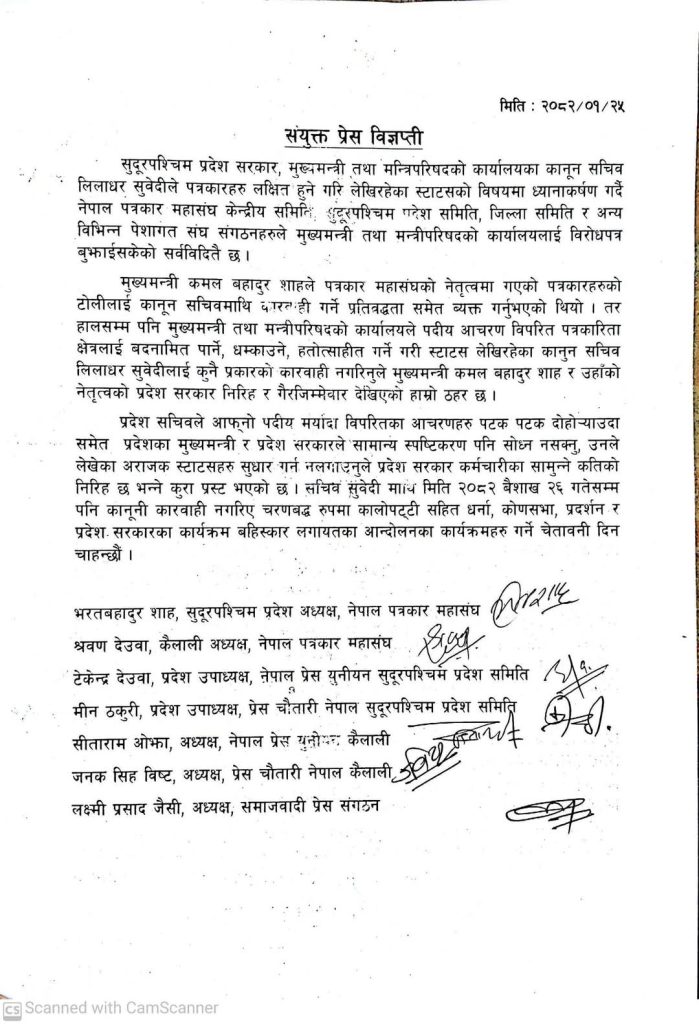 मिति : २०८२/०१/२५
संयुक्त प्रेस विज्ञप्ती
सुदूरपश्चिम प्रदेश सरकार, मुख्यमन्त्री तथा मन्त्रिपरिषदको कार्यालयका कानून सचिव
लिलाधर सुवेदीले पत्रकारहरु लक्षित हुने गरि लेखिरहेका स्टाटसको विषयमा ध्यानाकर्षण गर्दै
नेपाल पत्रकार महासंघ केन्द्रीय समिति, सुदूरपश्चिम प्रदेश समिति, जिल्ला समिति र अन्य
विभिन्न पेशागत संघ संगठनहरुले मुख्यमन्त्री तथा मन्त्रीपरिषदको कार्यालयलाई विरोधपत्र
बुझाईसकेको सर्वविदितै छ ।
मुख्यमन्त्री कमल बहादुर शाहले पत्रकार महासंघको नेतृत्वमा गएको पत्रकारहरुको
टोलीलाई कानून सचिवमाथि कारवाही गर्ने प्रतिवद्धता समेत व्यक्त गर्नुभएको थियो । तर
हालसम्म पनि मुख्यमन्त्री तथा मन्त्रीपरिषदको कार्यालयले पदीय आचरण विपरित पत्रकारिता
क्षेत्रलाई बदनामित पार्ने, धम्काउने, हतोत्साहीत गर्ने गरी स्टाटस लेखिरहेका कानुन सचिव
लिलाधर सुवेदीलाई कुनै प्रकारको कारवाही नगरिनुले मुख्यमन्त्री कमल बहादुर शाह र उहाँको
नेतृत्वको प्रदेश सरकार निरिह र गैरजिम्मेबार देखिएको हाम्रो ठहर छ ।
प्रदेश सचिवले आफ्नो पदीय मर्यादा विपरितका आचरणहरु पटक पटक दोहोऱ्याउदा
समेत प्रदेशका मुख्यमन्त्री र प्रदेश सरकारले सामान्य स्पष्टिकरण पनि सोध्न नसक्नु, उनले
लेखेका अराजक स्टाटसहरु सुधार गर्न नलगाउनुले प्रदेश सरकार कर्मचारीका सामुन्ने कतिको
निरिह छ भन्ने कुरा प्रस्ट भएको छ । सचिव सुवेदी माथि मिति २०८२ बैशाख २६ गतेसम्म
पनि कानूनी कारवाही नगरिए चरणबद्ध रुपमा कालोपट्टी सहित धर्ना, कोणसभा, प्रदर्शन र
प्रदेश सरकारका कार्यक्रम बहिस्कार लगायतका आन्दोलनका कार्यक्रमहरु गर्ने चेतावनी दिन
चाहन्छौं ।
भरतबहादुर शाह, सुदूरपश्चिम प्रदेश अध्यक्ष, नेपाल पत्रकार महासंघ
श्रवण देउवा, कैलाली अध्यक्ष, नेपाल पत्रकार महासंघ
टेकेन्द्र देउवा, प्रदेश उपाध्यक्ष, नेपाल प्रेस युनीयन सुदूरपश्चिम प्रदेश समिति
मीन ठकुरी, प्रदेश उपाध्यक्ष, प्रेस चौतारी नेपाल सुदूरपश्चिम प्रदेश समिति
सीताराम ओझा, अध्यक्ष, नेपाल प्रेस युनीयन कैलाली
जनक सिह विष्ट, अध्यक्ष, प्रेस चौतारी नेपाल कैलाली
लक्ष्मी प्रसाद जैसी, अध्यक्ष, समाजवादी प्रेस संगठन
CS Scanned with CamScanner